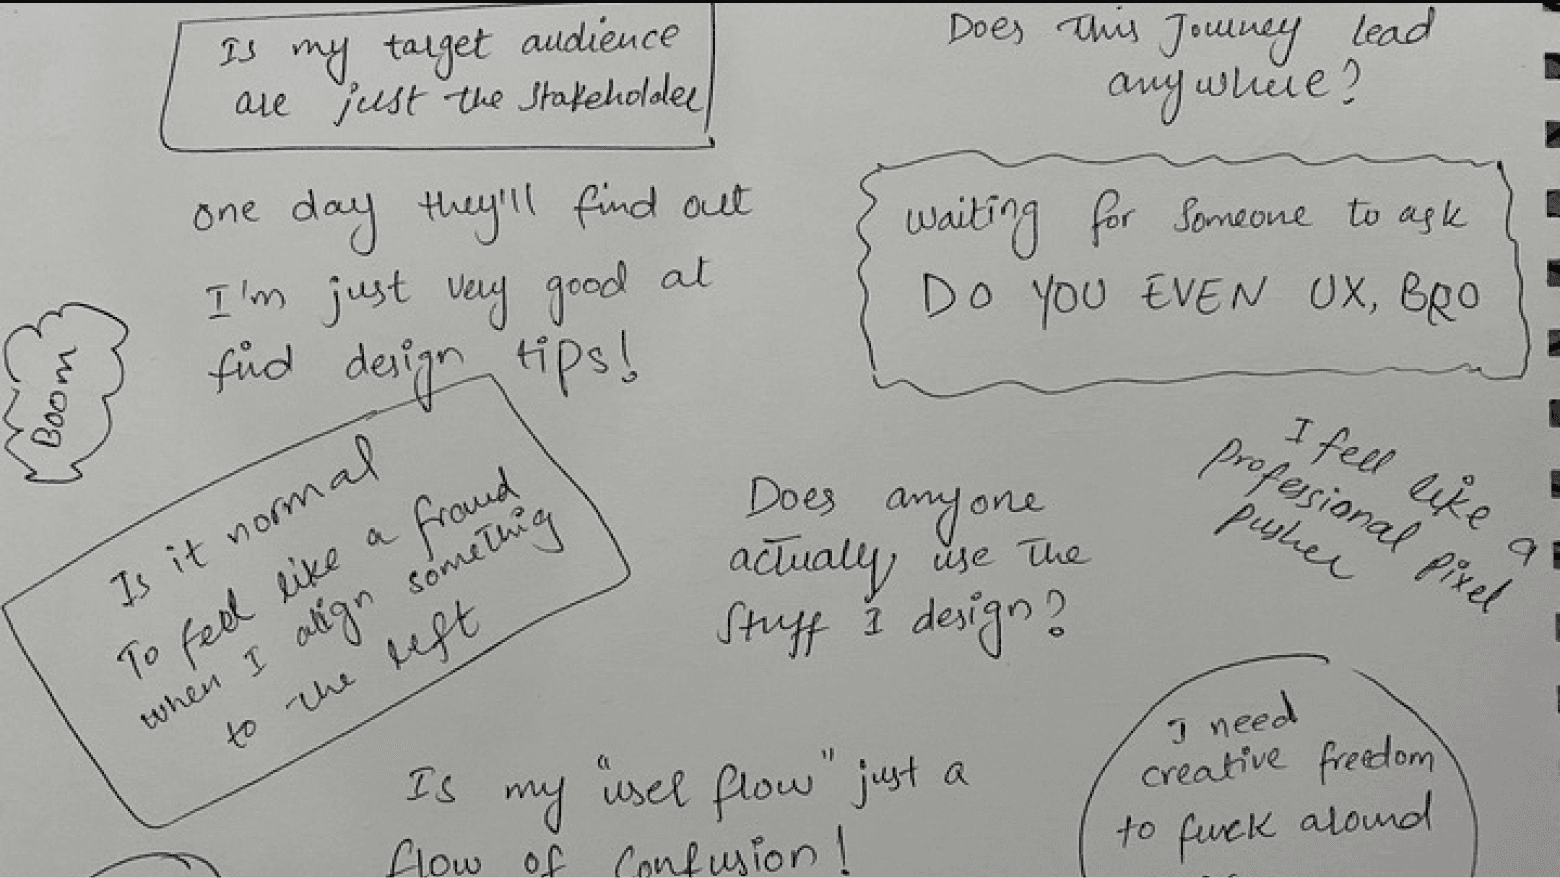 Is my target audience
are just the stakeholder
Does This Journey lead
anywhere?
one day they'll find out
I'm just very good at
find design tips!
waiting for someone to ask
DO YOU EVEN UX, BRO
Boom
Is it normal
To feel like a fraud
when I align something
to the left
Does anyone
actually use The
Stuff I design?
I feel like a
professional pixel
pusher
I need
creative freedom
to fuck around
Is my "user flow" just a
flow of confusion!